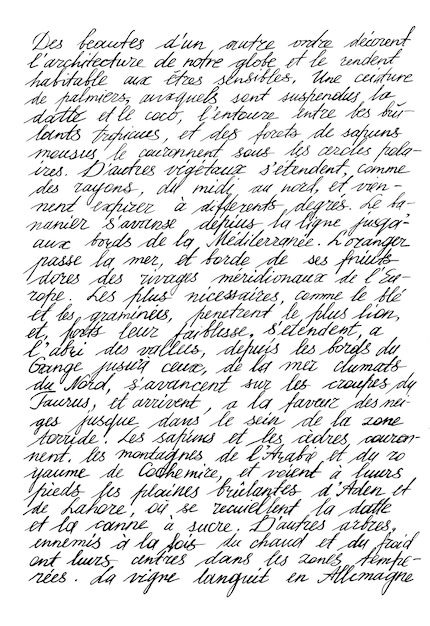 Des beautes d'un autre ordre décorent
l'architecture de notre globe et le rendent
habitable aux êtres sensibles. Une ceinture
de palmiers, auxquels sont suspendus la
datte et le coco, l'entoure entre les brû-
lants tropiques, et des forets de sapins
mousus le couronnent sous les cercles pola-
ires. D'autres végétaux s'étendent, comme
des rayons, du midi au nord, et vien-
nent expirer à differents degrés. Le ba-
nanier s'avanse depuis la ligne jusqu'
aux bords de la Mediterranée. L'oranger
passe la mer, et borde de ses fruits
dores des rivages méridionaux de l'Eu-
rope. Les plus nécessaires, comme le blé
et les graminées, penetrent le plus lion,
et, forts leur faiblesse, s'etendent, a
l'abri des vallées, depuis les bords du
Gange jusqu'à ceux, de la mer climats
du Nord, s'avancent sur les croupes du
Taurus, et arrivent, a la faveur des nei-
ges jusque dans le sein de la zone
torride. Les sapins et les cèdres couron-
nent, les montagnes de l'Arabie et du ro
yaume de Cachemire, et voient à leurs
pieds les plaines brûlantes d'Aden et
de Lahore, où se recueillent la datte
et la canne à sucre. D'autres arbres,
ennemis à la fois du chaud et du froid
ont leurs centres dans les zones tempe-
rées. La vigne languit en Allemagne